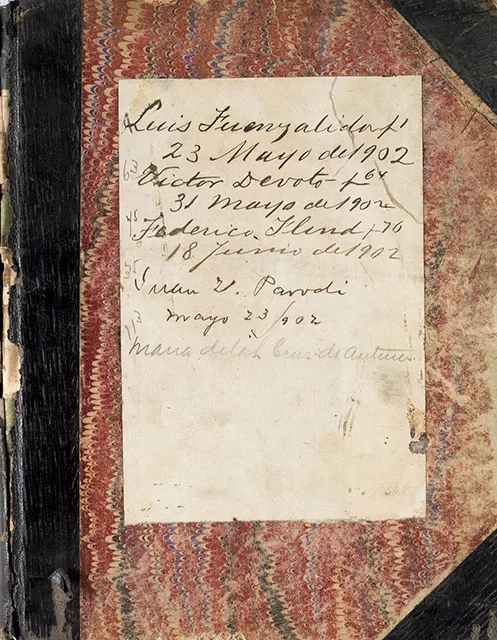 Luis Fuenzalida f 1
23 Mayo de 1902
Victor Devoto f 64
31 Mayo de 1902
Federico f 76
18 Junio de 1902
Juan V. Parodi
Mayo 23/902
Maria de la Cruz de